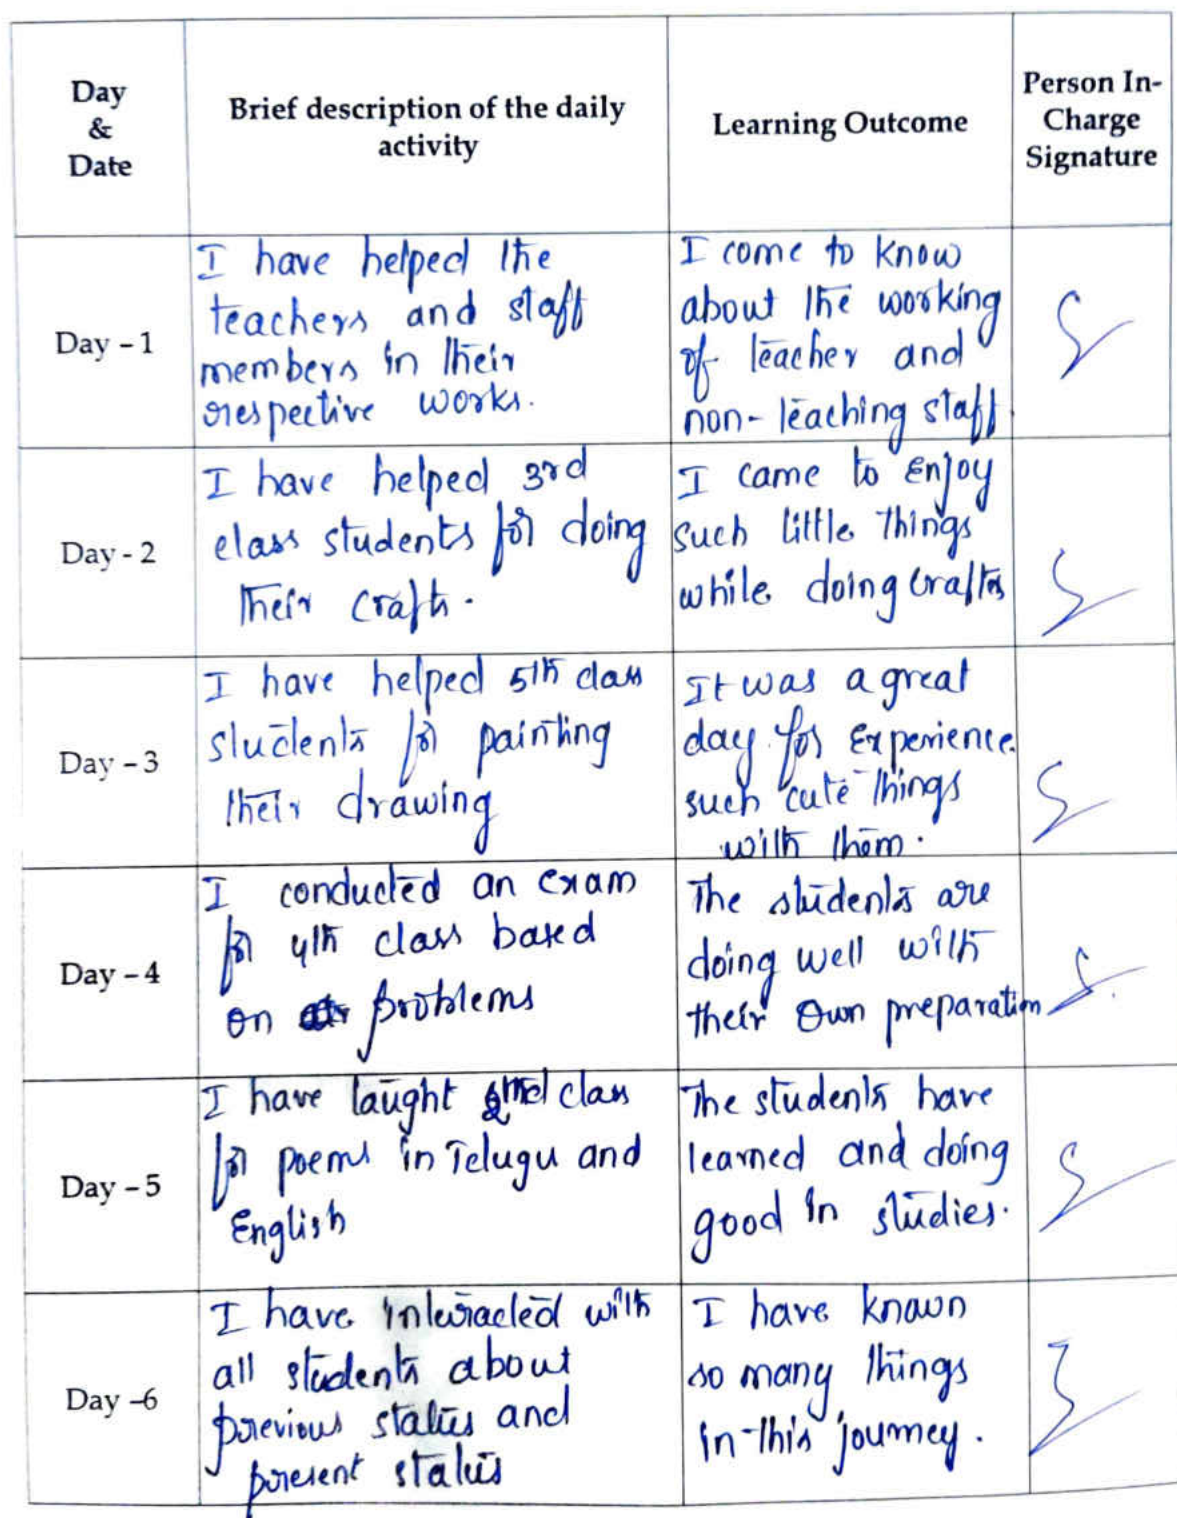 Day
&
Date
Brief description of the daily
activity
Learning Outcome
Person In-
Charge
Signature
Day – 1
I have helped the
teachers and staff
members in their
respective works.
I come to know
about the working
of teacher and
non-teaching staff
Day - 2
I have helped 3rd
class students for doing
their crafts.
I came to Enjoy
such little things
while doing crafts
Day – 3
I have helped 5th class
students for painting
their drawing
It was a great
day for Experience
such cute things
with them.
Day – 4
I conducted an exam
for 4th class based
on problems
The students are
doing well with
their own preparation
Day – 5
I have taught class
for poems in Telugu and
English
The students have
learned and doing
good in studies.
Day –6
I have interacted with
all students about
previous status and
present status
I have known
so many things
in this journey.